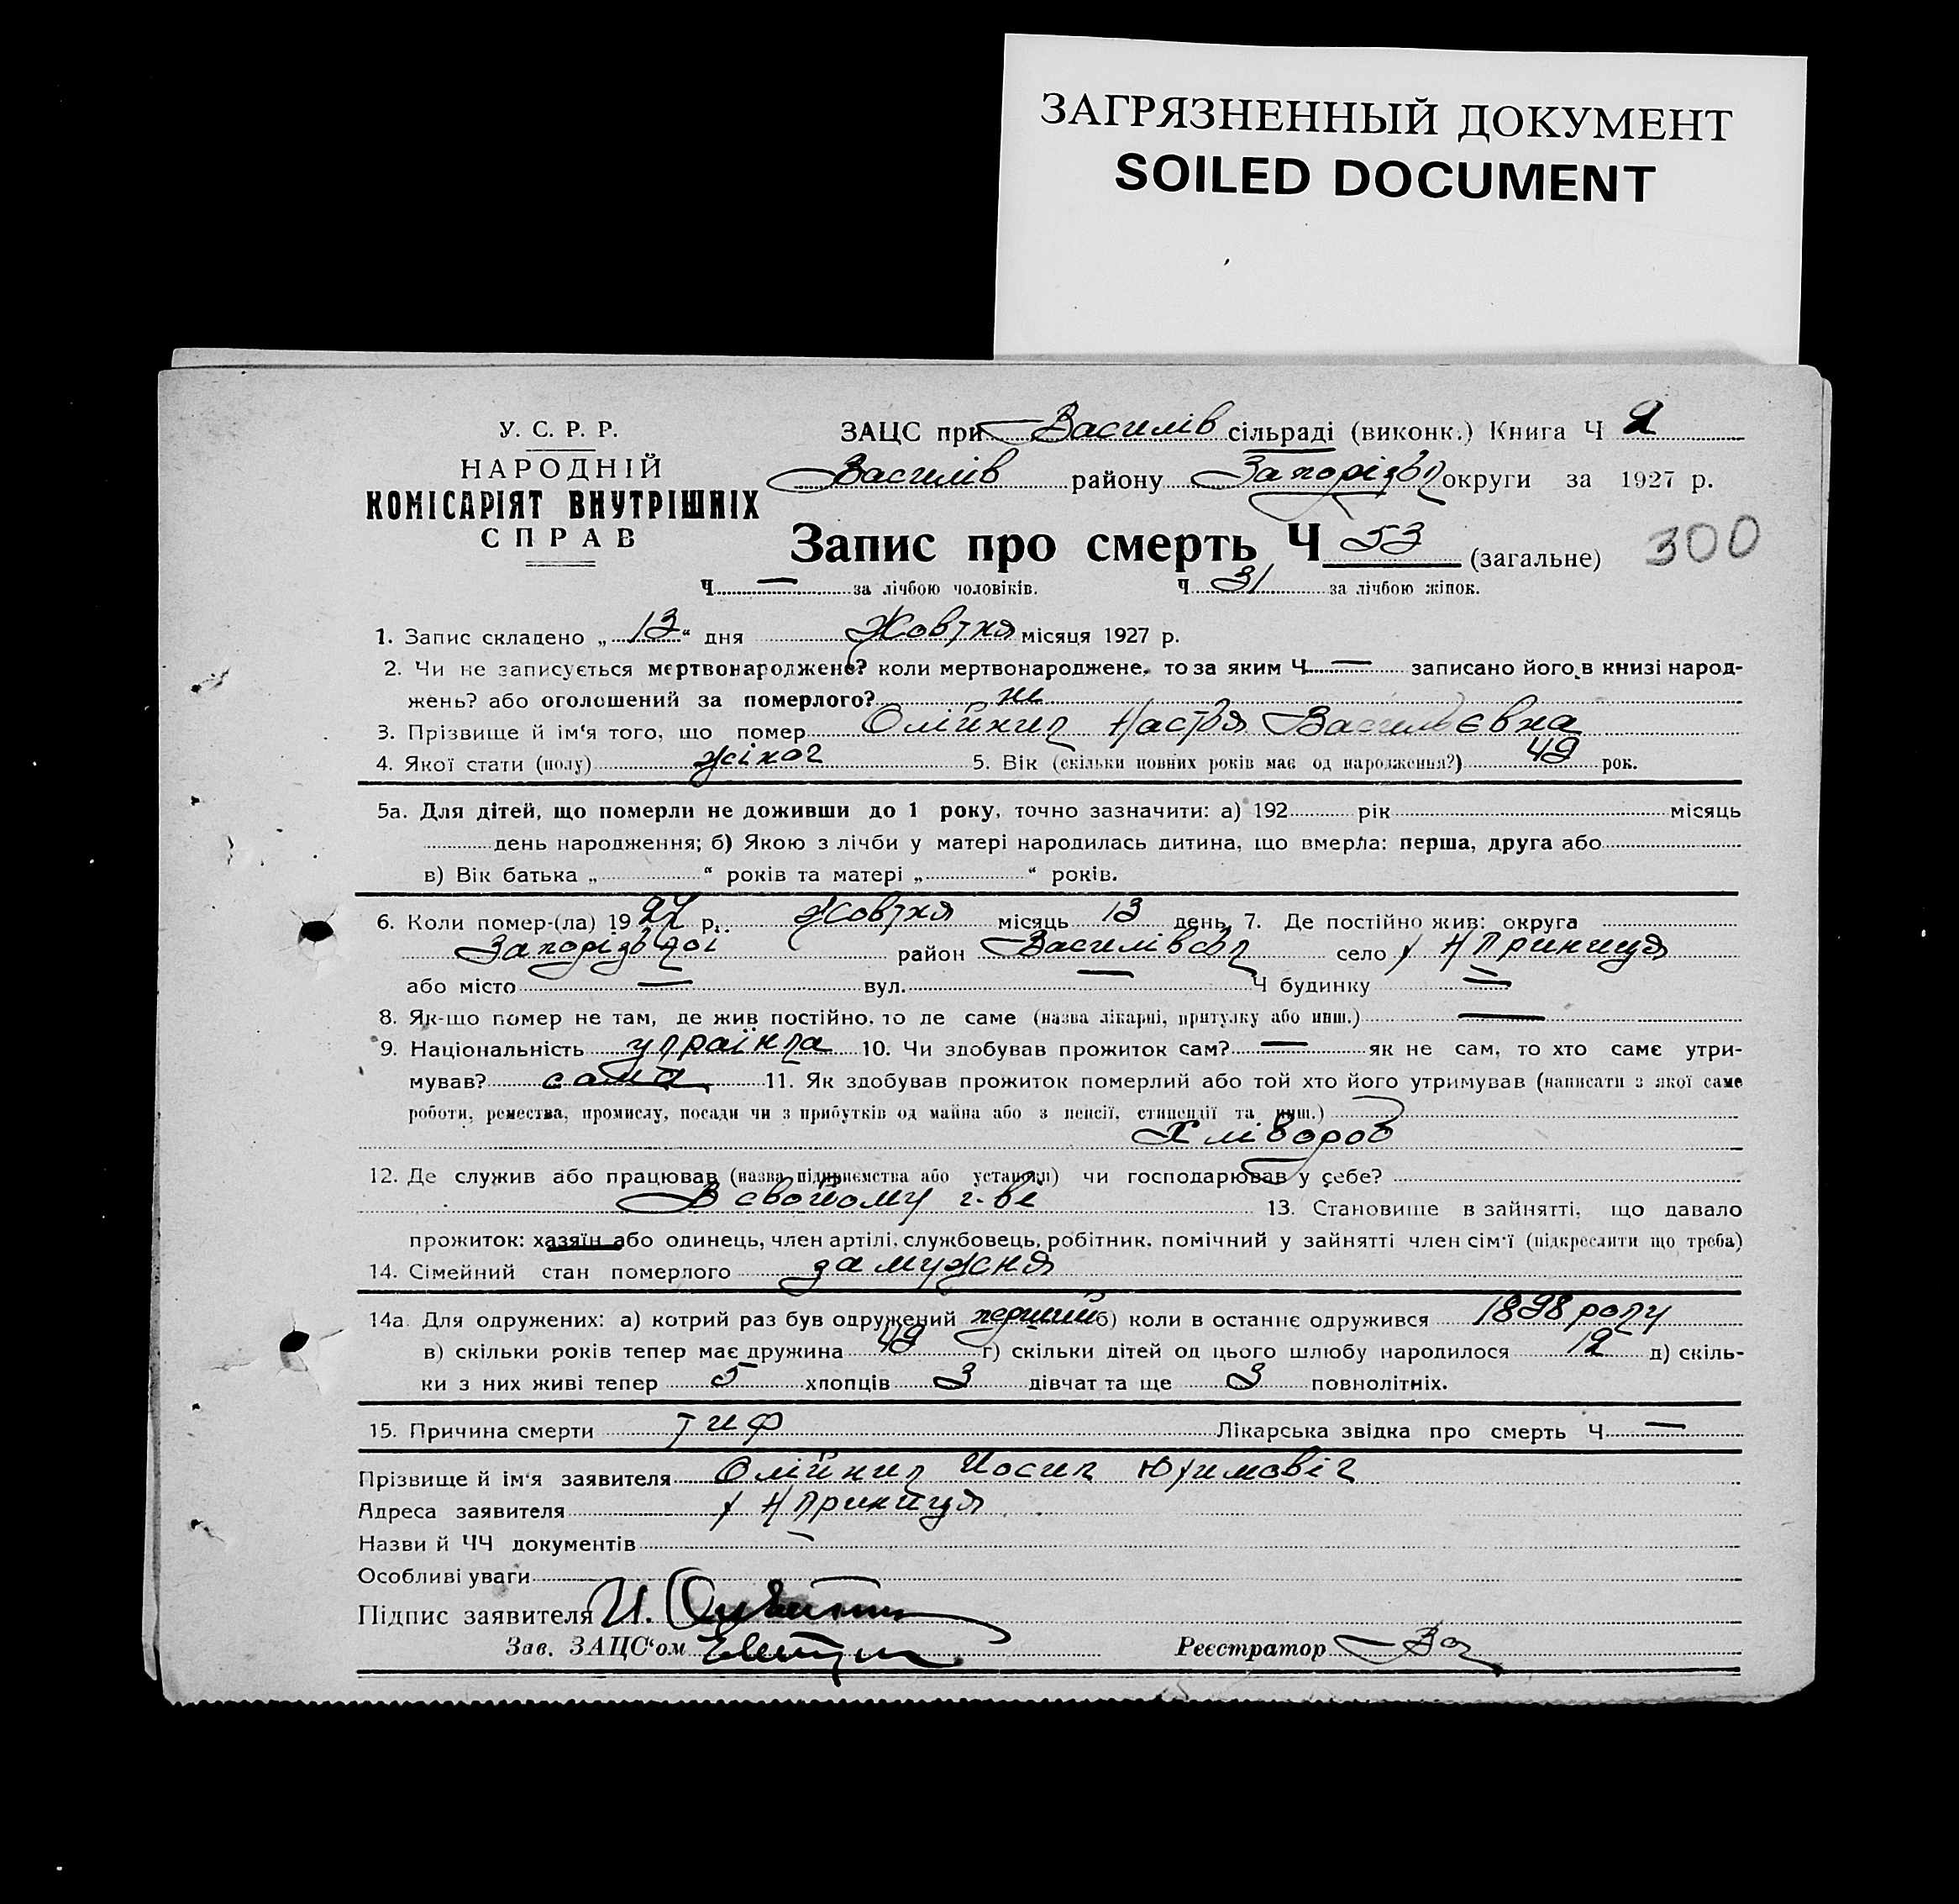 ЗАГРЯЗНЕННЫЙ ДОКУМЕНТ
SOILED DOCUMENT
У. С. Р. Р.
НАРОДНІЙ
КОМІСАРІЯТ ВНУТРІШНІХ
СПРАВ
ЗАЦС при Василів сільраді (виконк.) Книга Ч 2
Василів району Запорізьк округи за 1927 р.
Запис про смерть Ч 53 (загальне) 300
Ч — за лічбою чоловіків. Ч 31 за лічбою жінок.
1. Запис складено „ 13 “ дня Жовтня місяця 1927 р.
2. Чи не записується мертвонароджене? коли мертвонароджене, то за яким Ч — записано його в книзі народ-
жень? або оголошений за померлого? ні
3. Прізвище й ім‘я того, що помер Олійник Настя Васильєвна
4. Якої стати (полу) жіноч 5. Вік (скільки повних років має од народження?) 49 рок.
5а. Для дітей, що померли не доживши до 1 року, точно зазначити: а) 192 рік місяць
день народження; б) Якою з лічби у матері народилась дитина, що вмерла: перша, друга або
в) Вік батька „ “ років та матері „ “ років.
6. Коли помер-(ла) 1927 р. Жовтня місяць 13 день 7. Де постійно жив: округа
Запорізької район Василівськ село х Н Криниця
або місто — вул. — Ч будинку —
8. Як-що помер не там, де жив постійно, то де саме (назва лікарні, притулку або инш.) —
9. Національність українка 10. Чи здобував прожиток сам? — як не сам, то хто саме утри-
мував? сама 11. Як здобував прожиток померлий або той хто його утримував (написати з якої саме
роботи, ремества, промислу, посади чи з прибутків од майна або з пенсії, стипендії та инш.)
Хліброб
12. Де служив або працював (назва підприємства або установи) чи господарював у себе?
В свойому г-ві 13. Становище в зайнятті, що давало
прожиток: хазяїн або одинець, член артілі, службовець, робітник, помічний у зайнятті член сім‘ї (підкреслити що треба)
14. Сімейний стан померлого замужня
14а. Для одружених: а) котрий раз був одружений перший б) коли в останнє одружився 1898 року
в) скільки років тепер має дружина 49 г) скільки дітей од цього шлюбу народилося 12 д) скіль-
ки з них живі тепер 5 хлопців 3 дівчат та ще 3 повнолітніх.
15. Причина смерти тиф Лікарська звідка про смерть Ч —
Прізвище й ім‘я заявителя Олійник Иосип Юхимовіч
Адреса заявителя х Н Криниця
Назви й ЧЧ документів
Особливі уваги
Підпис заявителя И.
Зав. ЗАЦС‘ом
Реєстратор